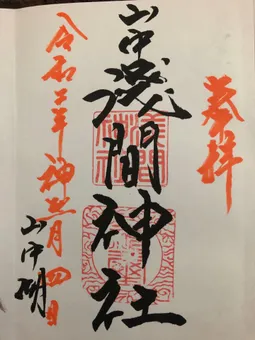 奉拝
山中浅間神社
令和二年神無月四日
山中湖